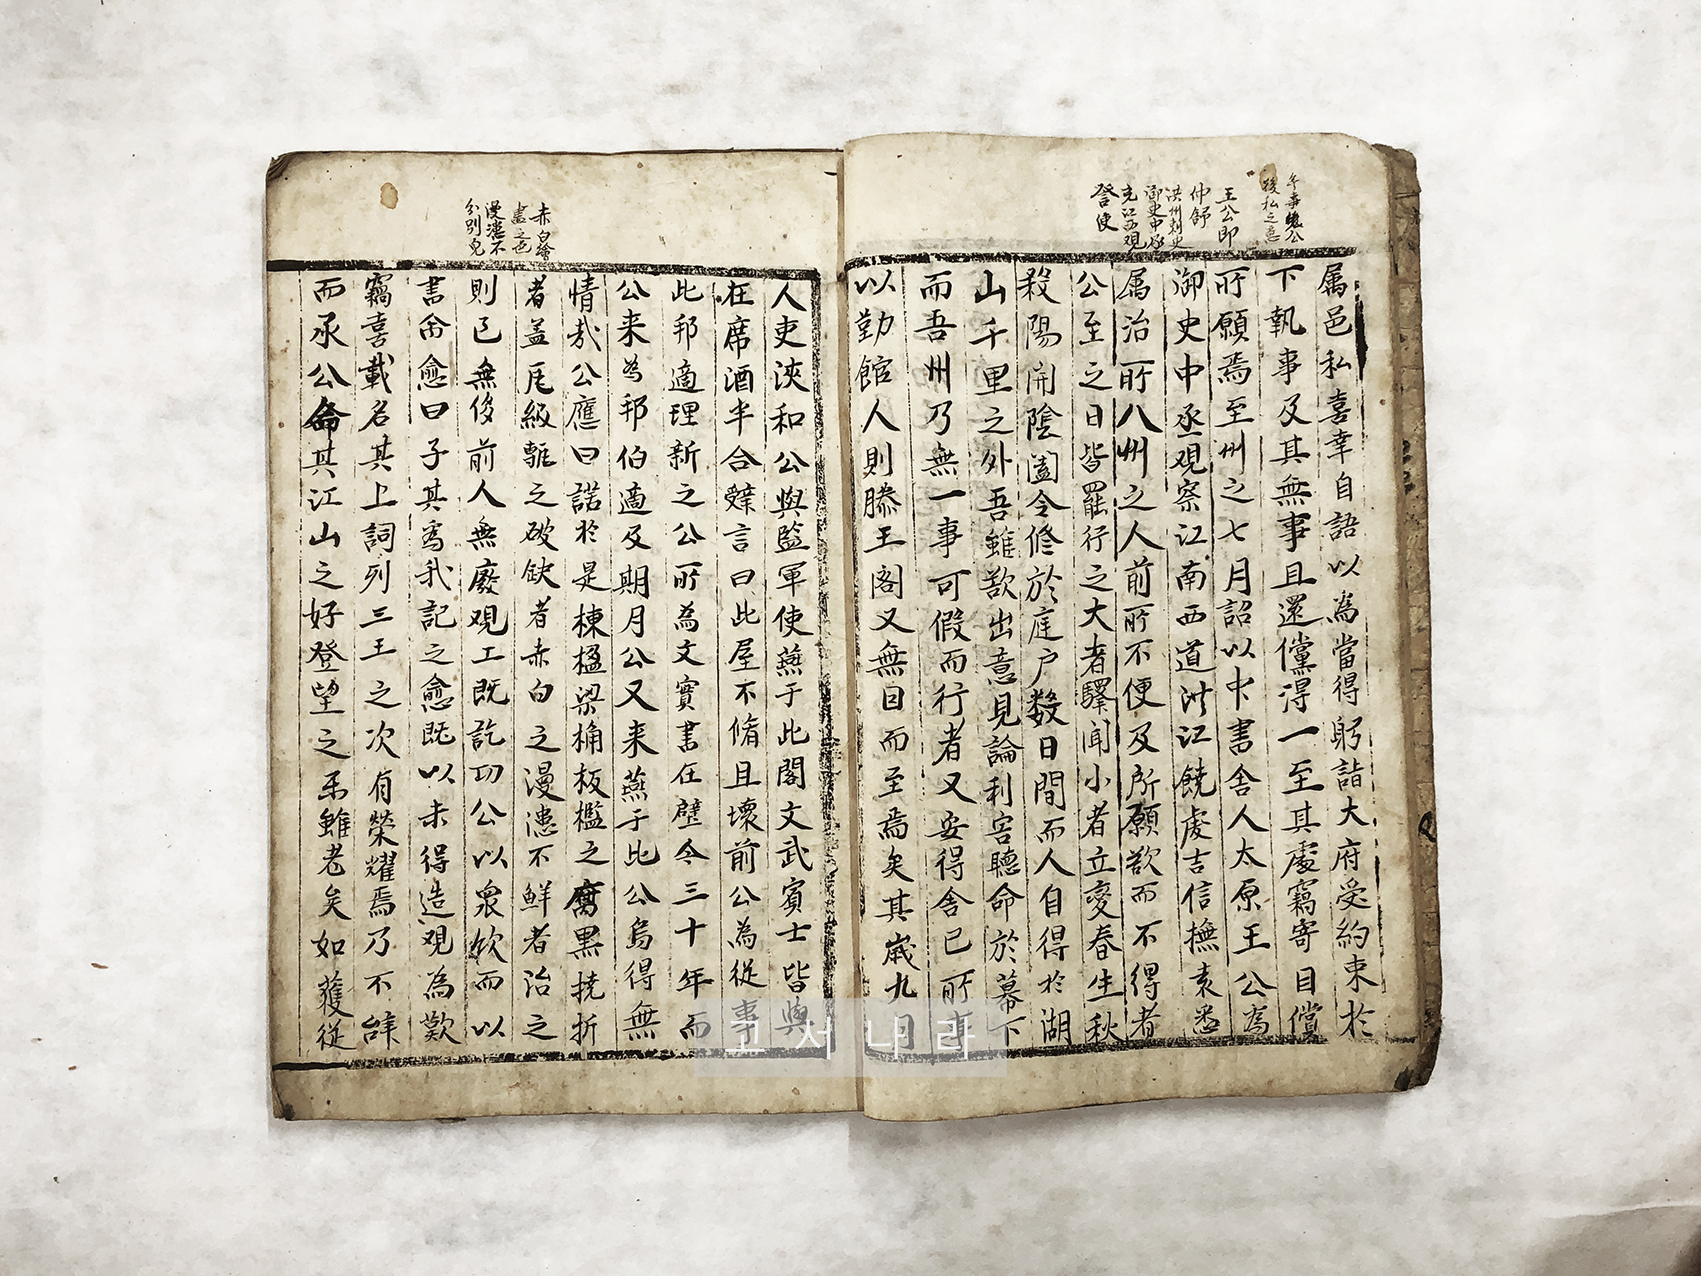 冬事
後私之意
王公即
仲舒
洪州刺史
御史中丞
充江西觀
詧使
属邑私喜幸自語以為當得躬詣大府受約束於
下執事及其無事且還儻淂一至其處竊寄目償
所願焉至州之七月詔以中書舍人太原王公為
御史中丞觀察江南西道洪江饒虔吉信撫袁悉
属治所八州之人前所不便及所願欲而不得者
公至之日皆罷行之大者驛聞小者立変春生秋
殺陽開陰闔令修於庭户数日間而人自得於湖
山千里之外吾雖欲出意見論利害聽命於幕下
而吾州乃無一事可假而行者又安得舍已所事
以勤館人則滕王閣又無因而至焉矣其歲九月
人吏浹和公與監軍使燕于此閣文武賓士皆與
在席酒半合辤言曰此屋不脩且壞前公為從事
此邦適理新之公所為文實書在壁今三十年而
公来為邦伯適及期月公又来燕于此公烏得無
情㢤公應曰諾於是棟楹梁桷板檻之腐黑撓折
者盖瓦級甎之破缺者赤白之漫漶不鮮者治之
則已無侈前人無廢观工既訖功公以衆飲而以
書命愈曰子其為我記之愈既以未得造观為歎
竊喜載名其上詞列三王之次有榮耀焉乃不辞
而承公命其江山之好登望之樂雖老矣如獲従
赤白繪
畫之色
漫漶不
分別皃
고서나라